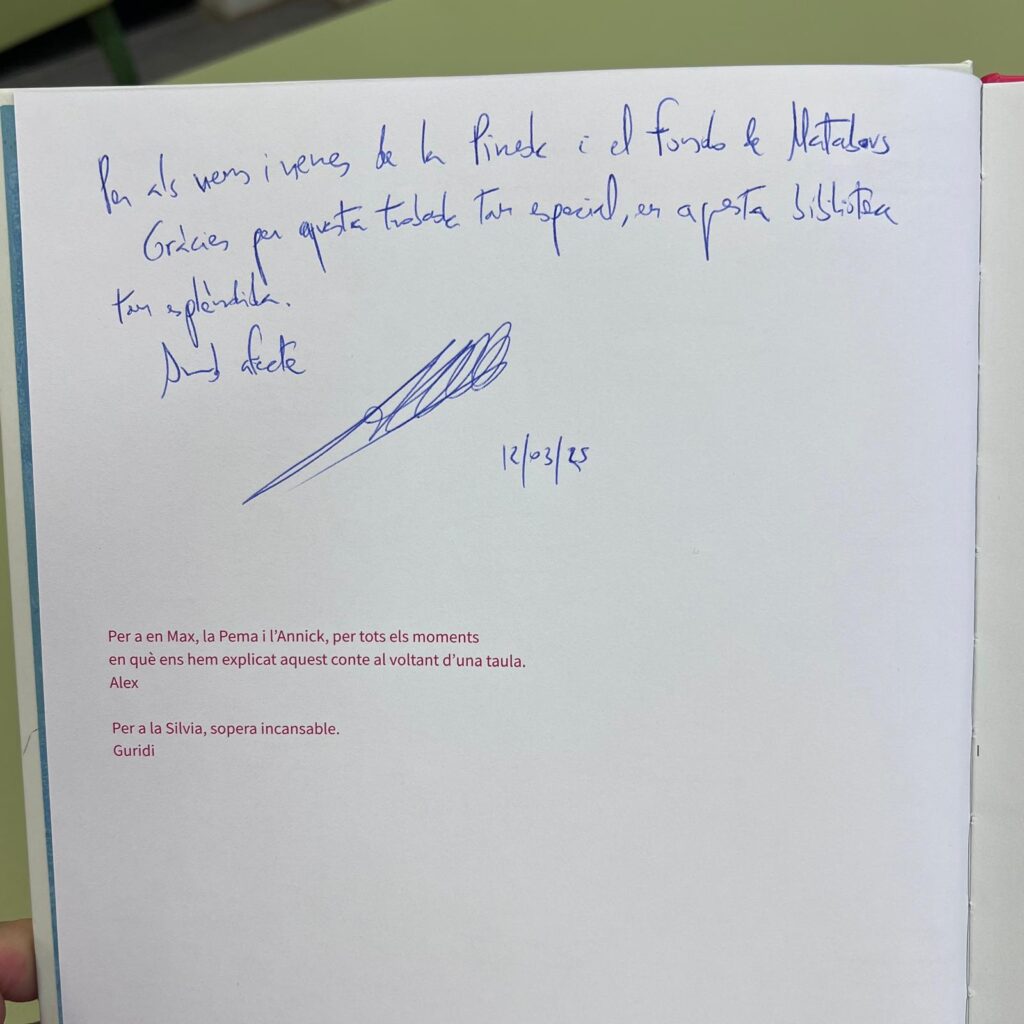 Per als nens i nenes de la Pineda i el Fondo de Matabous
Gràcies per aquesta trobada tan especial, en aquesta biblioteca
tan esplèndida.
Amb afecte
12/03/25
Per a en Max, la Pema i l'Annick, per tots els moments
en què ens hem explicat aquest conte al voltant d'una taula.
Alex
Per a la Silvia, sopera incansable.
Guridi